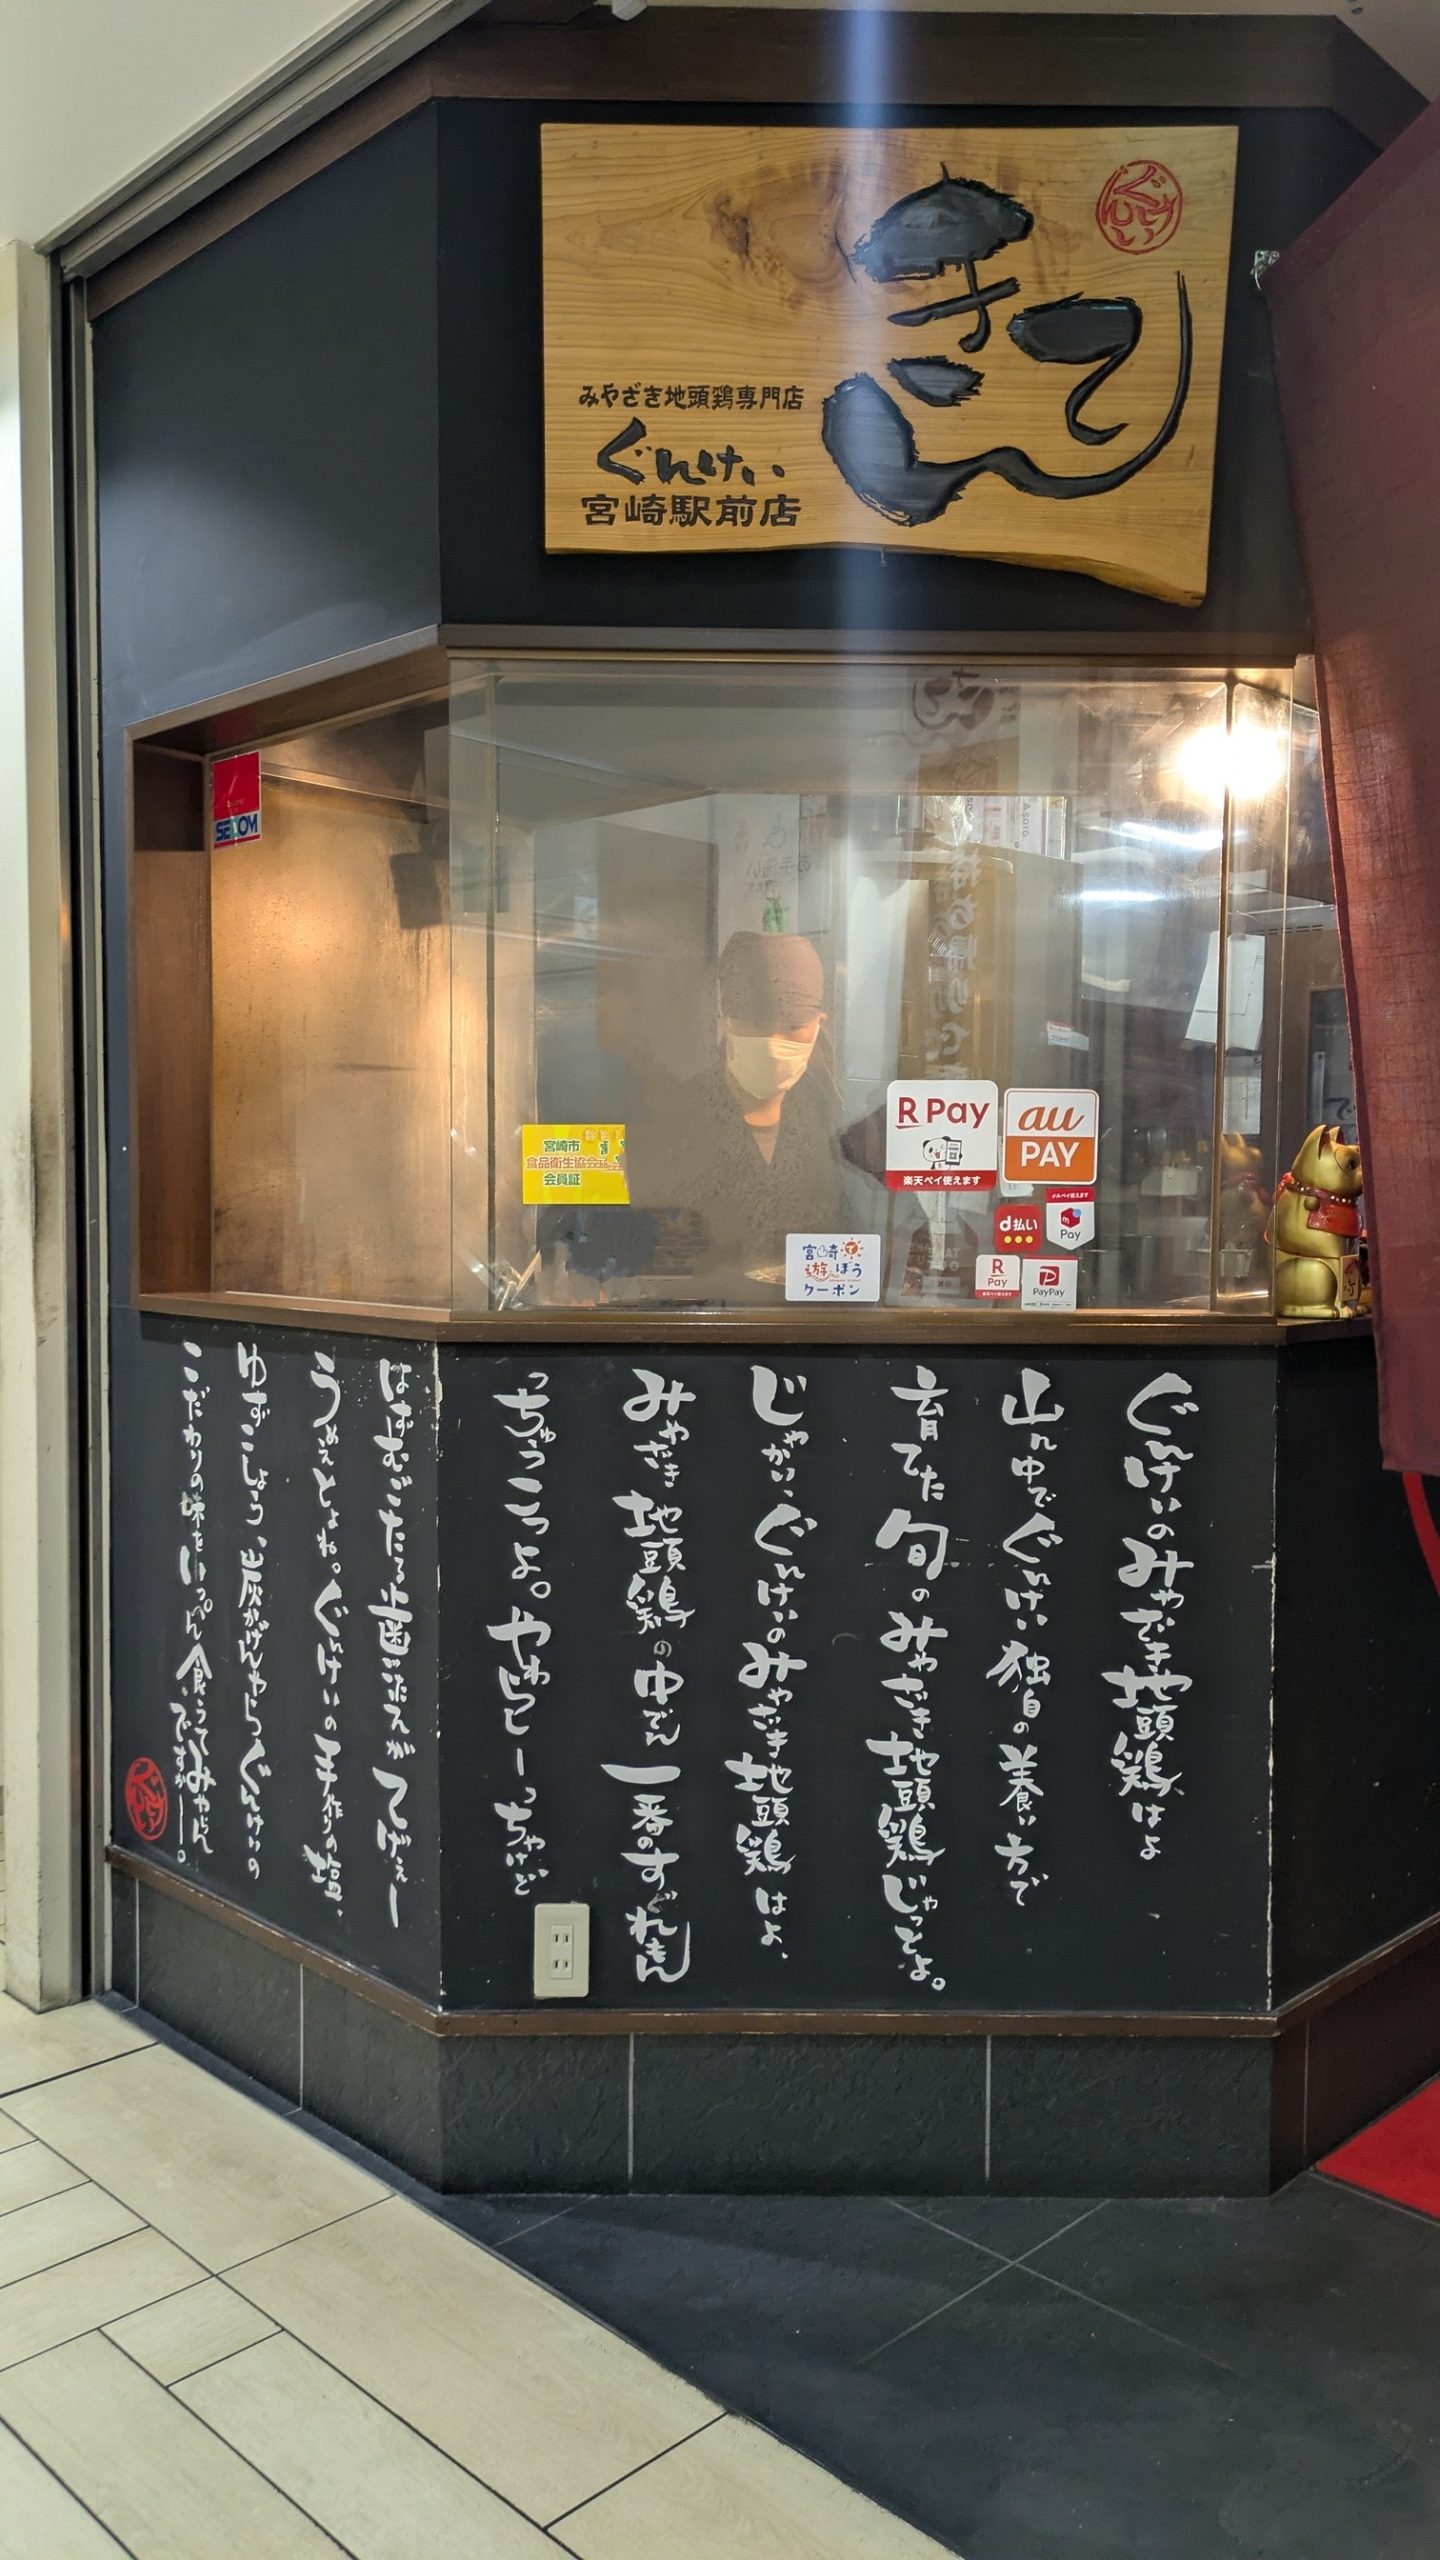 ぐんけい
きてん
みやざき地頭鶏専門店
ぐんけい
宮崎駅前店
SECOM
宮崎市
食品衛生協会
会員証
R Pay
楽天ペイ使えます
au
PAY
d払い
メルペイ使えます
Pay
R
Pay
PayPay
宮崎で
遊ぼう
クーポン
ぐんけいのみやざき地頭鶏はよ
山ん中でぐんけい独自の養い方で
育てた旬のみやざき地頭鶏じゃっとよ。
じゃかい、ぐんけいのみやざき地頭鶏はよ、
みやざき地頭鶏の中でん一番のすぐれもん
っちゅうこつよ。やわらけーっちゃけど
はずむごたる歯ごたえがてげぇー
うめえとよね。ぐんけいの手作りの塩、
ゆずこしょう、炭かげんやらぐんけいの
こだわりの味をいっぺん食うてみやらん
ですかー。
ぐんけい